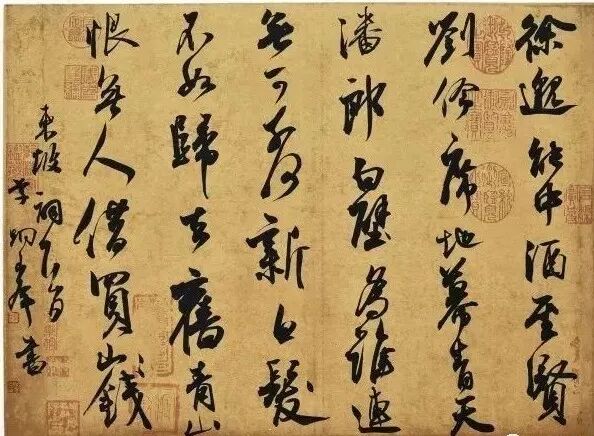 徐邈能中酒圣賢
劉伶席地幕青天
潘郎白璧為誰連
無可奈何新白髮
不如歸去舊青山
恨無人借買山錢
東坡詞
李書